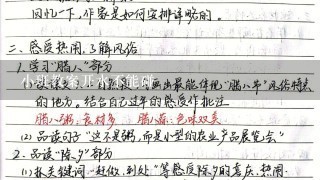 回忆一下，作家是如何安排详略的。
二、感受热闹，了解风俗
1. 学习“腊八”部分
小班教案开水不能碰
画出最能体现“腊八节”风俗特点
的地方。结合自己过年的感受作批注
腊八粥：食材多 腊八蒜：色味双美
(2) 品读句子“这不是粥，而是小型的农业产品展览会”
2. 品读“除夕”部分
(1) 抓关键词“赶做、到处”等感受除夕的喜庆、热闹